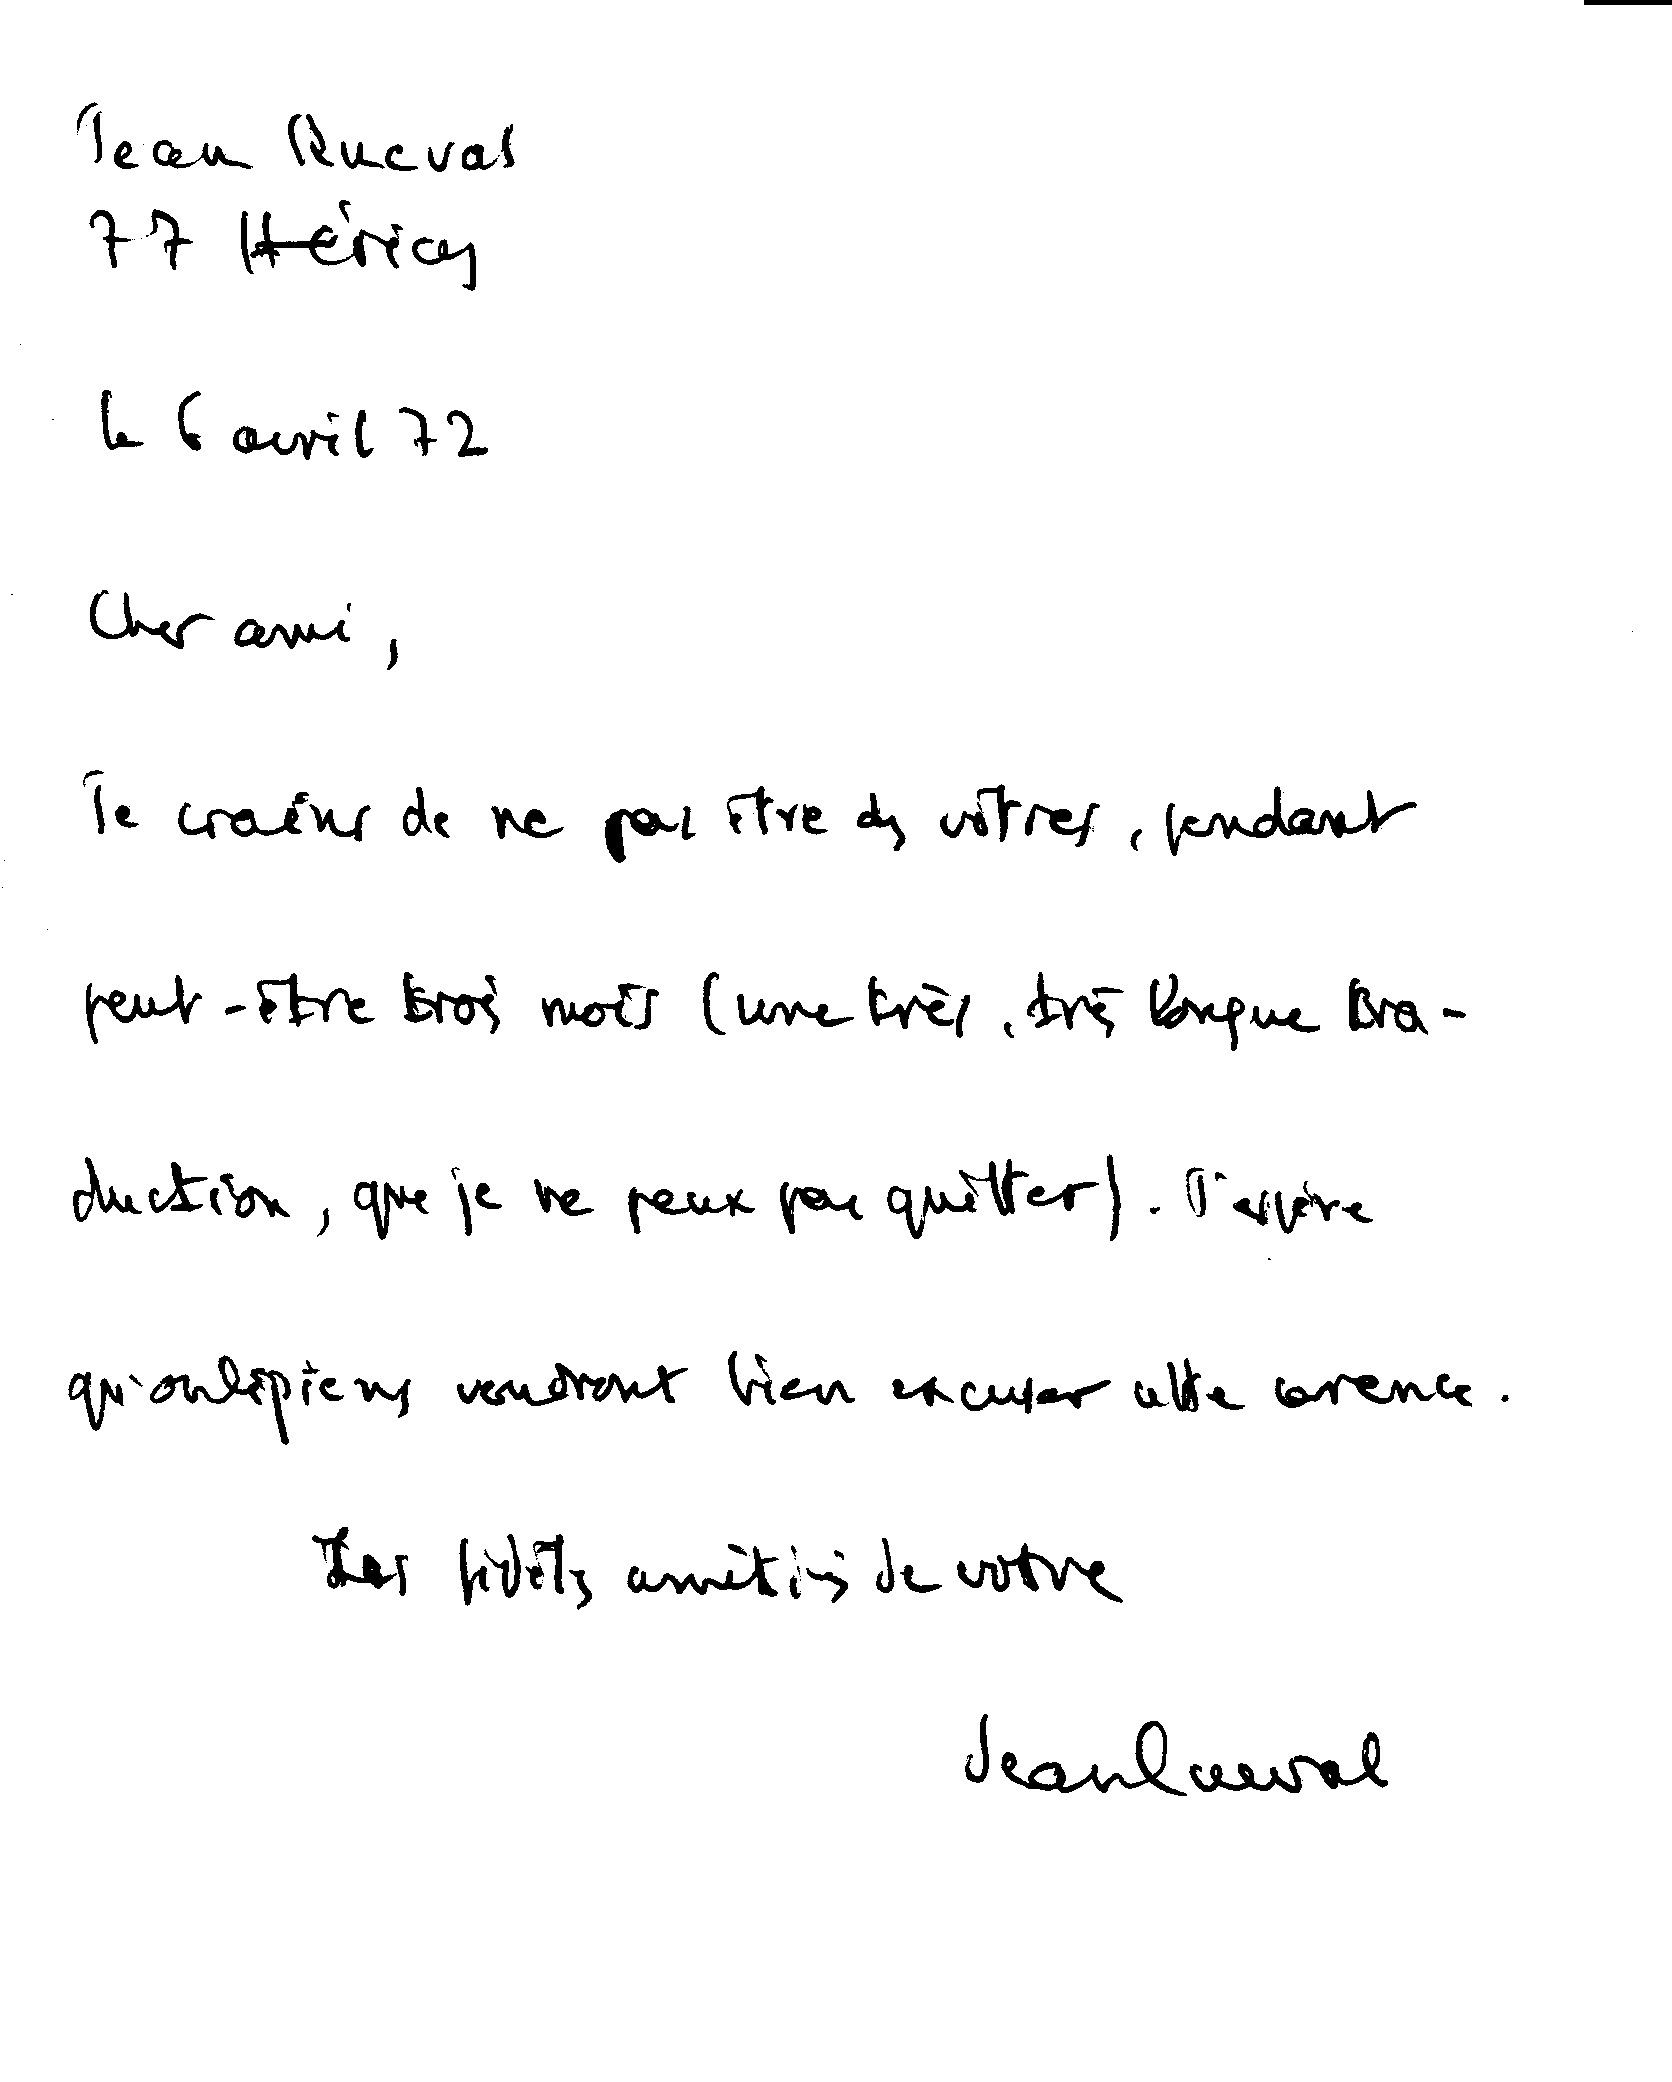 Jean Queval
77 Héricy
le 6 avril 72
Cher ami,
Je crains de ne pas être des vôtres, pendant
peut-être trois mois (une très, très longue tra-
duction, que je ne peux pas quitter). J'espère
qu'oulipiens voudront bien excuser cette carence.
Les fidèles amitiés de votre
Jean Queval